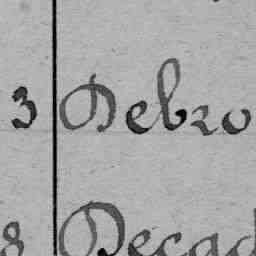 3 Debro
8 Decad